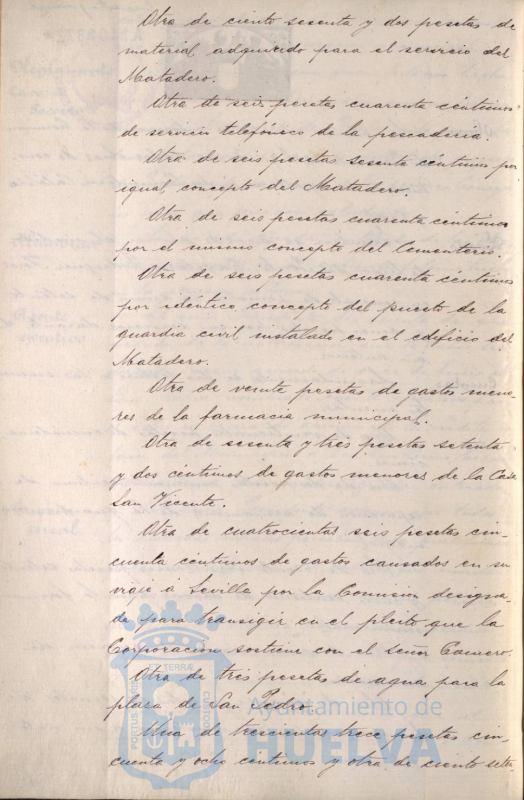 Otra de ciento sesenta y dos pesetas de
material adquirido para el servicio del
Matadero.
Otra de seis pesetas cuarenta céntimos
de servicio telefónico de la pescadería.
Otra de seis pesetas sesenta céntimos por
igual concepto del Matadero.
Otra de seis pesetas cuarenta céntimos
por el mismo concepto del Cementerio.
Otra de seis pesetas cuarenta céntimos
por idéntico concepto del puesto de la
guardia civil instalado en el edificio del
Matadero.
Otra de veinte pesetas de gastos meno-
res de la farmacia municipal.
Otra de sesenta y tres pesetas setenta
y dos céntimos de gastos menores de la Casa
San Vicente.
Otra de cuatrocientas seis pesetas cin-
cuenta céntimos de gastos causados en su
viaje á Sevilla por la Comision designa-
da para transigir en el pleito que la
Corporacion sostiene con el señor
Otra de tres pesetas de agua para la
plaza de San Pedro.
Una de trescientas trece pesetas cin-
cuenta y ocho centimos y otra de ciento seten-
Ayuntamiento de
HUELVA
PORTUS MARIS
ET TERRÆ
CUSTODIA